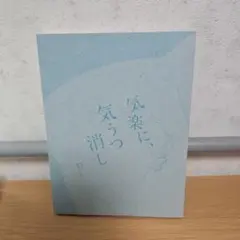 気楽に、
気うつ
消し